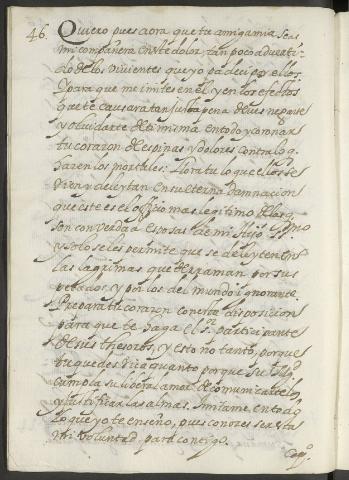 46. Quiero pues aora que tu amiga mia seas
mi compañera en este dolor tan poco aduerti-
do de los viuientes que yo padeci por ellos.
Y para que me imites en el y en los efectos
que te causara tan justa pena deues negarte
y oluidarte de ti misma en todo y coronar
tu coraçon de espinas y dolores contra lo q.
hazen los mortales: llora tu lo que ellos se
rien y deleytan en su eterna damnacion
que este es el officio mas legitimo de las q.
son con verdad esposas de mi Hijo SSmo
y solo se les permite que se deleyten en
las lagrimas que derraman por sus
pecados y por los del mundo ignorante.
Prepara tu coraçon con esta disposicion
para que te haga el Sr. participante
de sus thesoros, y esto no tanto, porque
tu quedes rica quanto porque su Mgd
cumpla su liberal amor de comunicartelos
y justificar las almas. Imitame en todo
lo que yo te enseño, pues conoces ser esta
mi voluntad para contigo.
Cap.